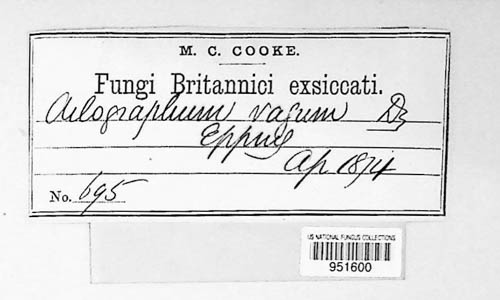 M. C. COOKE.
Fungi Britannici exsiccati.
Aulographum vagum Dz
Epping
Ap. 1874
No. 695
US NATIONAL FUNGUS COLLECTIONS
951600